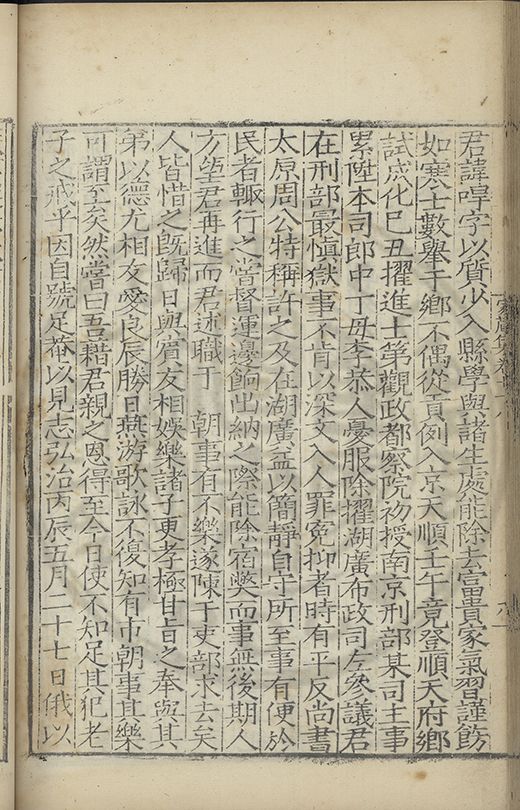 君諱㖕字以質少入縣學與諸生處能除去富貴家氣習謹飭
如寒士數舉于鄉不偶從貢例入京天順壬午竟登順天府鄉
試成化己丑擢進士第觀政都察院初授南京刑部某司主事
累陞本司郎中丁毋李恭人憂服除擢湖廣布政司左參議君
在刑部最慎獄事不肯以深文入人罪冤抑者時有平反尚書
太原周公特稱許之及在湖廣益以簡靜自守所至事有便於
民者輙行之嘗督運邊餉出納之際能除宿弊而事無後期人
方望君再進而君述職于 朝事有不樂遂陳于吏部求去矣
人皆惜之既歸日與賓友相娛樂諸子更孝極甘旨之奉與其
弟以德尤相友愛良辰勝日燕游歌詠不復知有市朝事其樂
可謂至矣然嘗曰吾藉君親之恩得至今日使不知足其犯老
子之戒乎因自號足菴以見志弘治丙辰五月二十七日俄以
家藏集卷